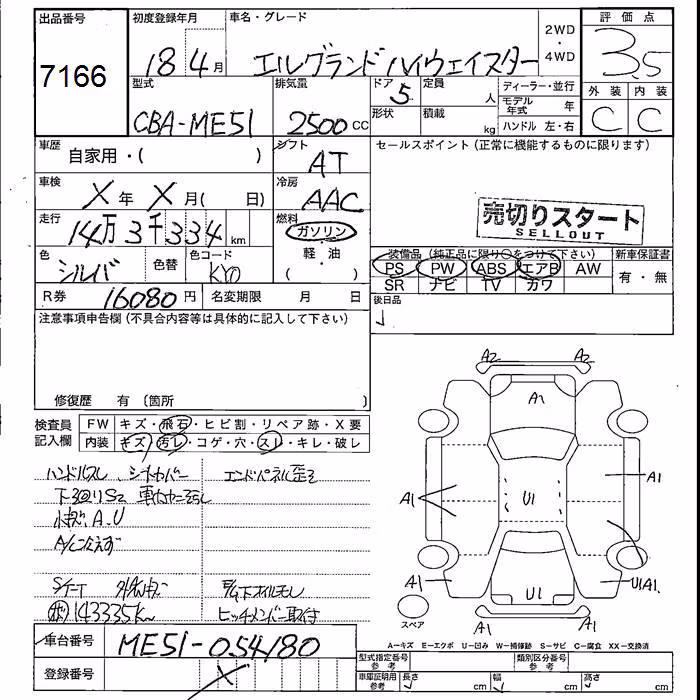 出品番号
7166
初度登録年月
18 4月
車名・グレード
エルグランド ハイウェイスター
2WD
・
4WD
評価点
3.5
外装 内装
C C
型式
CBA-ME51
排気量
2500 CC
ドア 5
形状
定員 人
積載 kg
ディーラー・並行
モデル年式 年
ハンドル 左・右
車歴
自家用・( )
シフト
AT
セールスポイント(正常に機能するものに限ります)
車検
X年 X月( 日)
冷房
AAC
走行
14万3千334 km
燃料
ガソリン
・
軽・油
( )
売切りスタート
SELLOUT
色
シルバ
色替
色コード
KY0
装備品(純正品に限り○をつけて下さい)
新車保証書
PS PW ABS エアB AW
有・無
SR ナビ TV カワ
R券 16080円
名変期限 月 日
後日品
注意事項申告欄(不具合内容等は具体的に記入して下さい)
修復歴 有 〔箇所 〕
検査員記入欄
FW キズ・飛石・ヒビ割・リペア跡・X要
内装 キズ・汚レ・コゲ・穴・スレ・キレ・破レ
ハンドルスレ、シートカバー
エンドパネル歪ミ
小キズ、A、U
143335K
下オイルモレ
ヒッチメンバー取付
車台番号
ME51-054180
登録番号
X
A2 A2
A1
A1
A1
U1
A1
U1
U1A1
A1 A1
スペア
A-キズ E-エクボ U-凹み W-補修跡 S-サビ C-腐食 XX-交換済
型式指定番号
参考
類別区分番号
参考
車庫証明用
参考
長さ cm
幅 cm
高さ cm